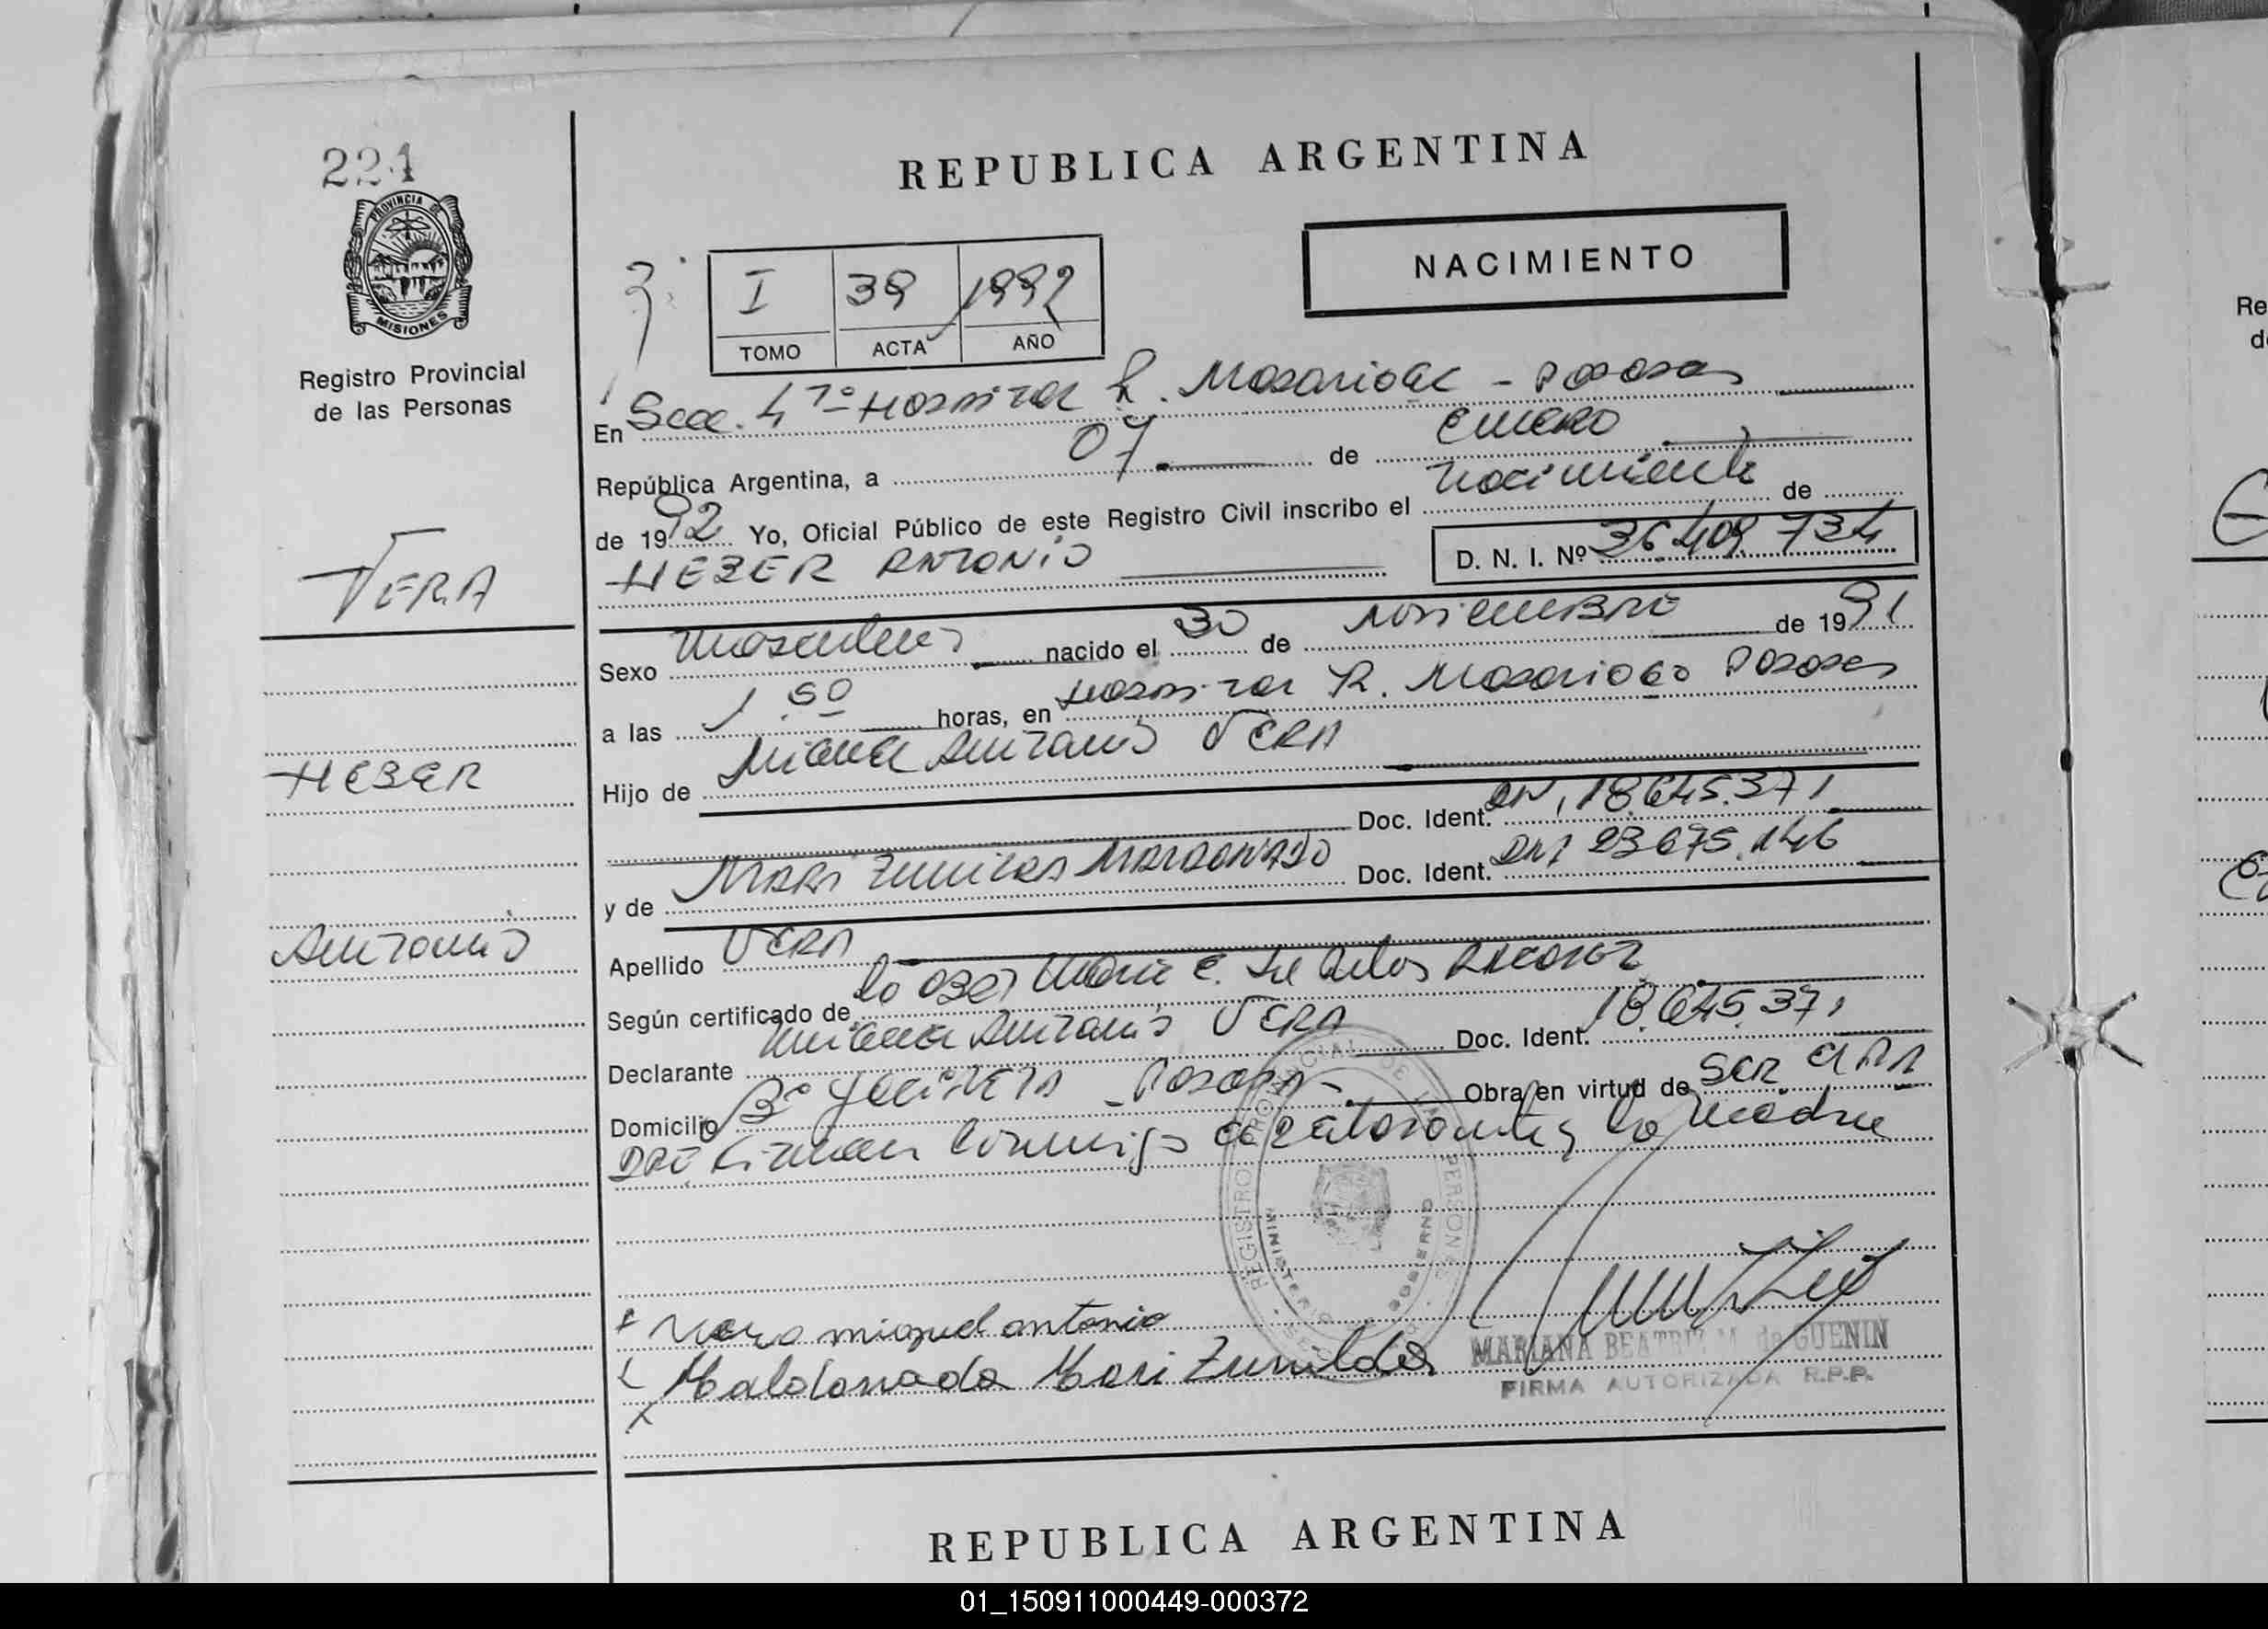 224
PROVINCIA DE
MISIONES
Registro Provincial
de las Personas
REPUBLICA ARGENTINA
NACIMIENTO
I 39 1992
TOMO ACTA AÑO
En Secc. 4ta Hospital R. Madariaga - Posadas
República Argentina, a 07 de Enero
de 1992 Yo, Oficial Público de este Registro Civil inscribo el Nacimiento de
HEBER ANTONIO D. N. I. Nº 36.409.734
VERA
Sexo Masculino nacido el 30 de Noviembre de 1991
a las 1.50 horas, en Hospital R. Madariaga Posadas
Hijo de Miguel Antonio VERA
HEBER
Doc. Ident. DNI 18.645.371
y de Mari Zunilda MALDONADO Doc. Ident. DNI 23.675.146
ANTONIO
Apellido VERA
Según certificado de la Obst Maria C. de
Declarante Miguel Antonio VERA Doc. Ident. 18.645.371
Domicilio Bº Yacireta - Posadas - Obra en virtud de Ser el PA
DRE Firman conmigo el declarante y la madre
REGISTRO PROVINCIAL DE LAS PERSONAS
MINISTERIO GOBIERNO
Vera miguel antonio
Maldonado Mari Zunilda
MARIANA BEATRIZ M. de GUENIN
FIRMA AUTORIZADA R.P.P.
REPUBLICA ARGENTINA
01_150911000449-000372